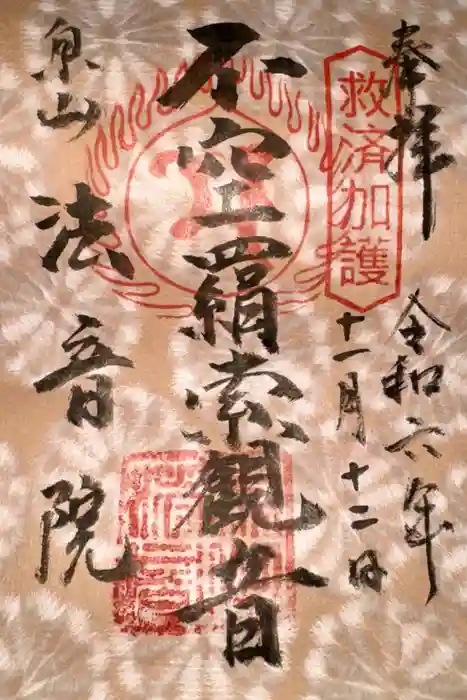 奉拝
令和六年
十一月十二日
救済加護
不空羂索観音
泉山
法音院